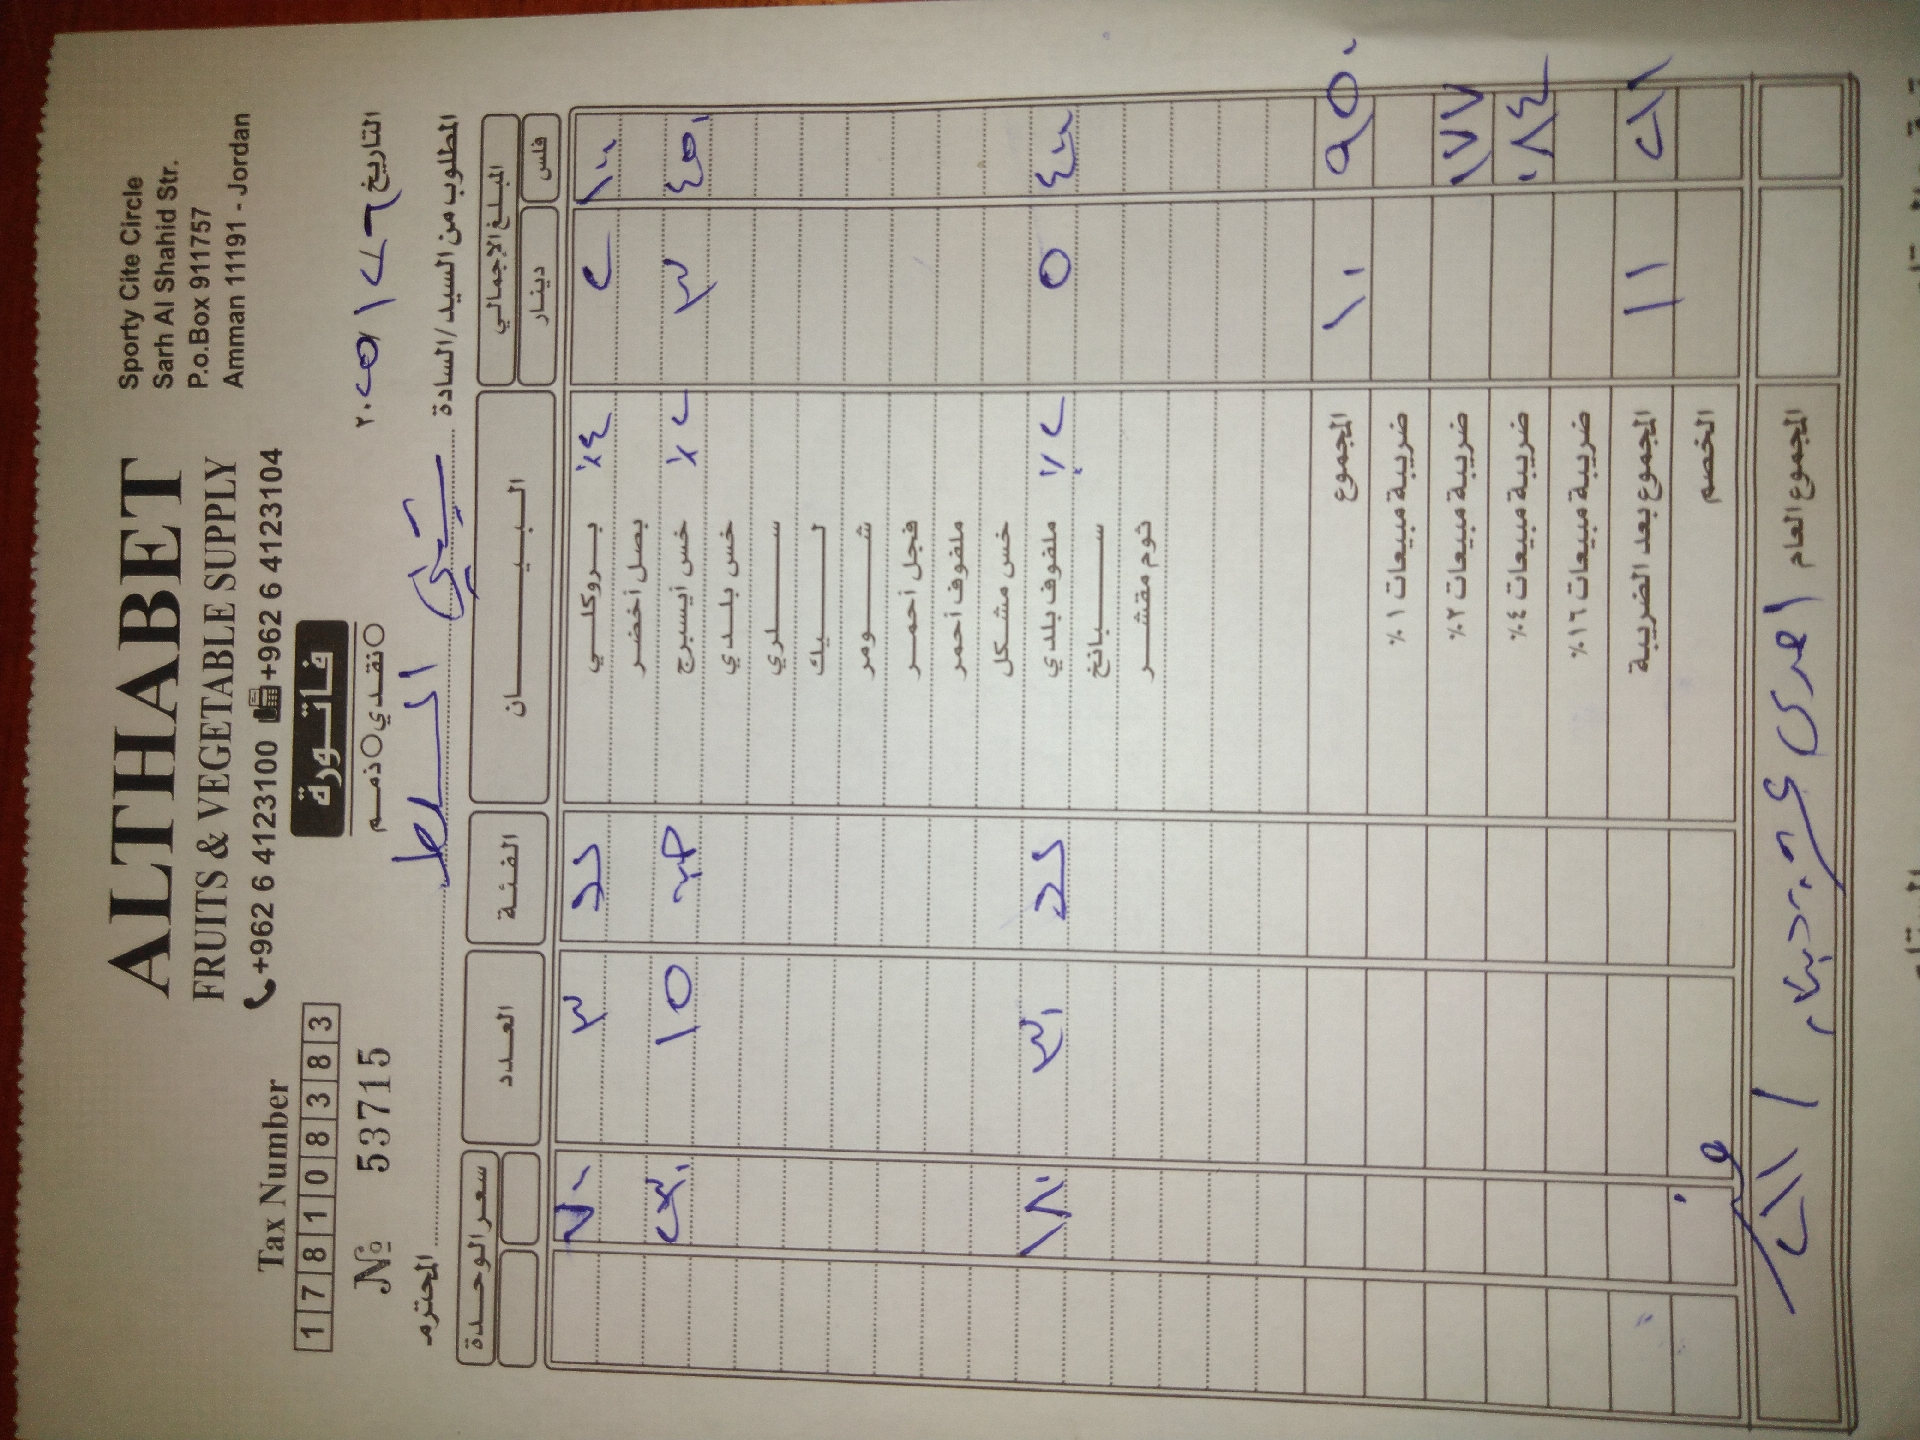 ALTHABET
FRUITS & VEGETABLE SUPPLY
+962 6 4123100 +962 6 4123104
Sporty Cite Circle
Sarh Al Shahid Str.
P.o.Box 911757
Amman 11191 - Jordan
Tax Number
1 7 8 1 0 8 3 8 3
№ 53715
فاتورة
نقدي ذمم
التاريخ
المطلوب من السيد/السادة السلط المحترم
المبلغ الإجمالي البيـــــان الفئة العدد سعر الوحدة
فلس دينار
١٠٠ ٢ بروكلي ٤٪ كغ ٣ ٧٠٠
بصل أخضر
٤٥٠ ٣ خس أيسبرج ٢٪ حبة ١٥ ٢٣٠
خس بلدي
سلري
ليك
شومر
فجل أحمر
ملفوف أحمر
خس مشكل
٤٠٠ ٥ ملفوف بلدي ٢٪ كغ ٣٠ ١٨٠
سبانخ
ثوم مقشر
٩٥٠ ١٠ المجموع
ضريبة مبيعات ١%
١٧٧ ضريبة مبيعات ٢%
٠٨٤ ضريبة مبيعات ٤%
ضريبة مبيعات ١٦%
٢١١ ١١ المجموع بعد الضريبة
الخصم
المجموع العام احدى عشر دينار و ٢١١